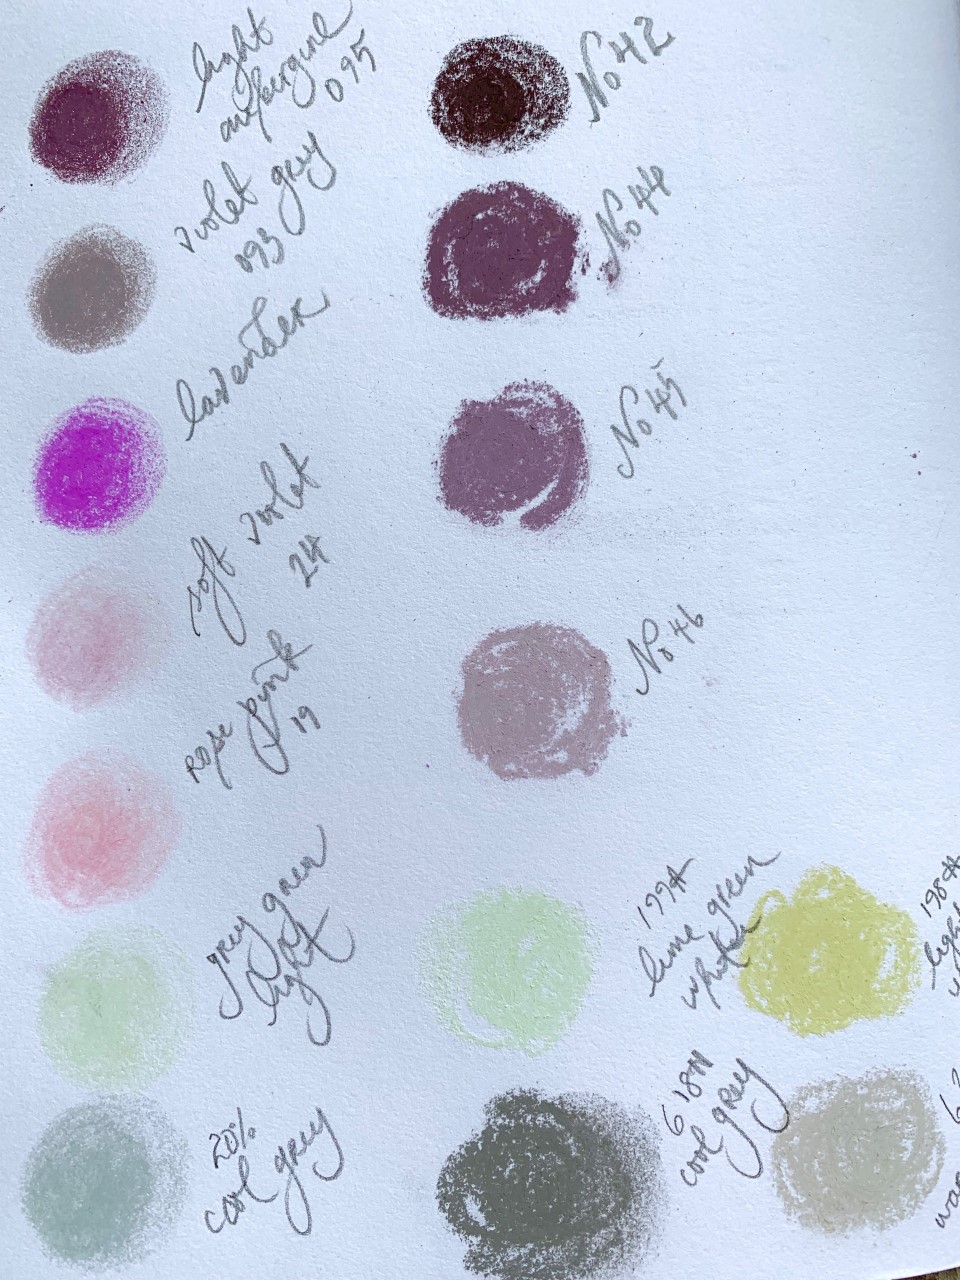 light
aubergine
095
No 42
violet grey
093
No 44
lavender
No 45
soft violet
24
No 46
rose pink
19
grey green
light
199#
lime green
white
198#
light
20%
cool grey
618#
cool grey